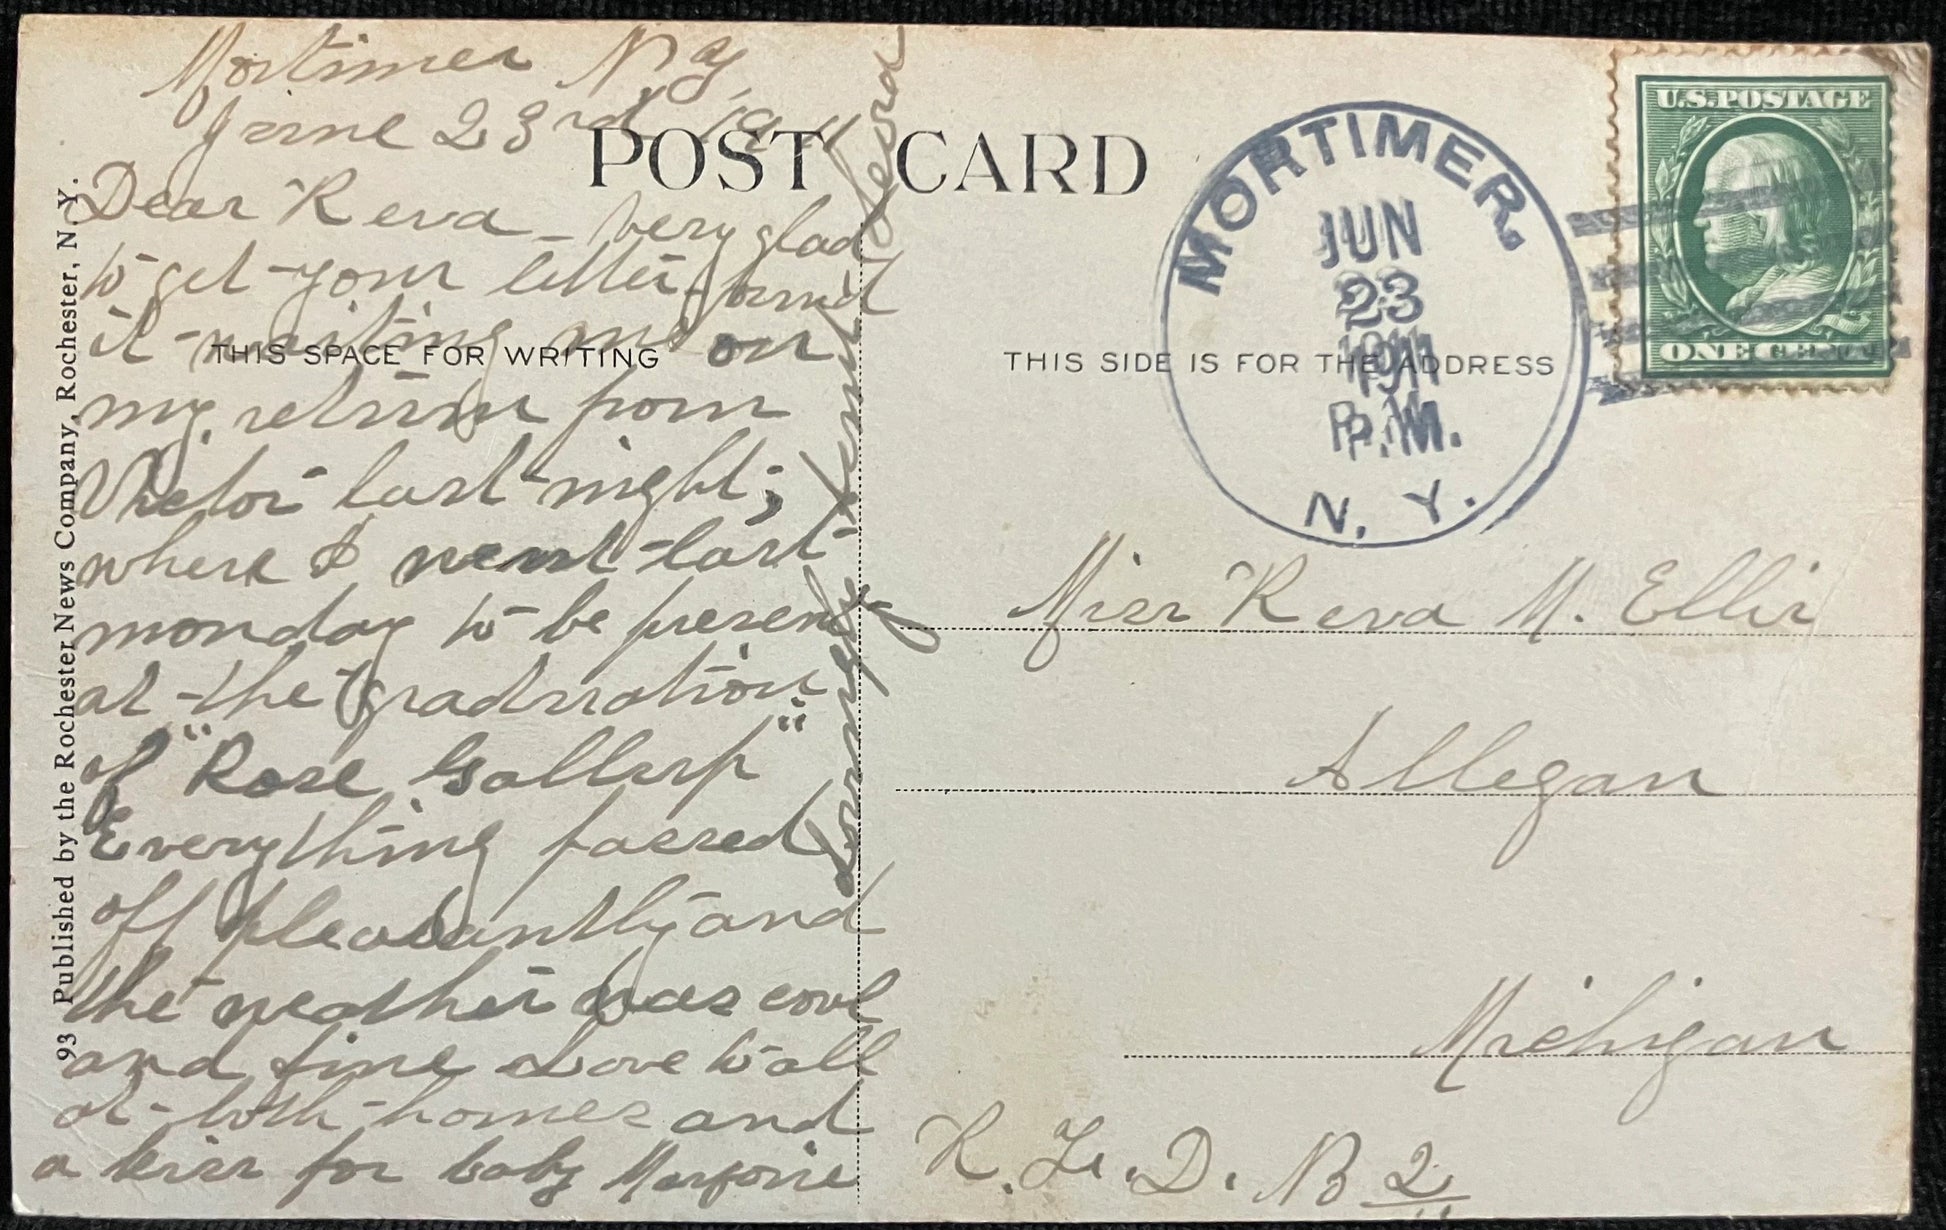 Mortimer N. Y.
June 23rd 1911
POST CARD
Dear Reva - Very glad
to get your letter, found
it waiting me on
THIS SPACE FOR WRITING
my return from
Victor last night;
where I went last
monday to be present
at the Graduation
of "Rose Gallup"
Everything passed
off pleasantly and
the weather was cool
and fine Love to all
at both homes and
a kiss for baby Marjorie
Lovingly Aunt
93 Published by the Rochester News Company, Rochester, N. Y.
THIS SIDE IS FOR THE ADDRESS
MORTIMER,
JUN
23
1911
P.M.
N. Y.
U.S. POSTAGE
ONE CENT
Miss Reva M. Ellis
Allegan
Michigan
R. F. D. No 2